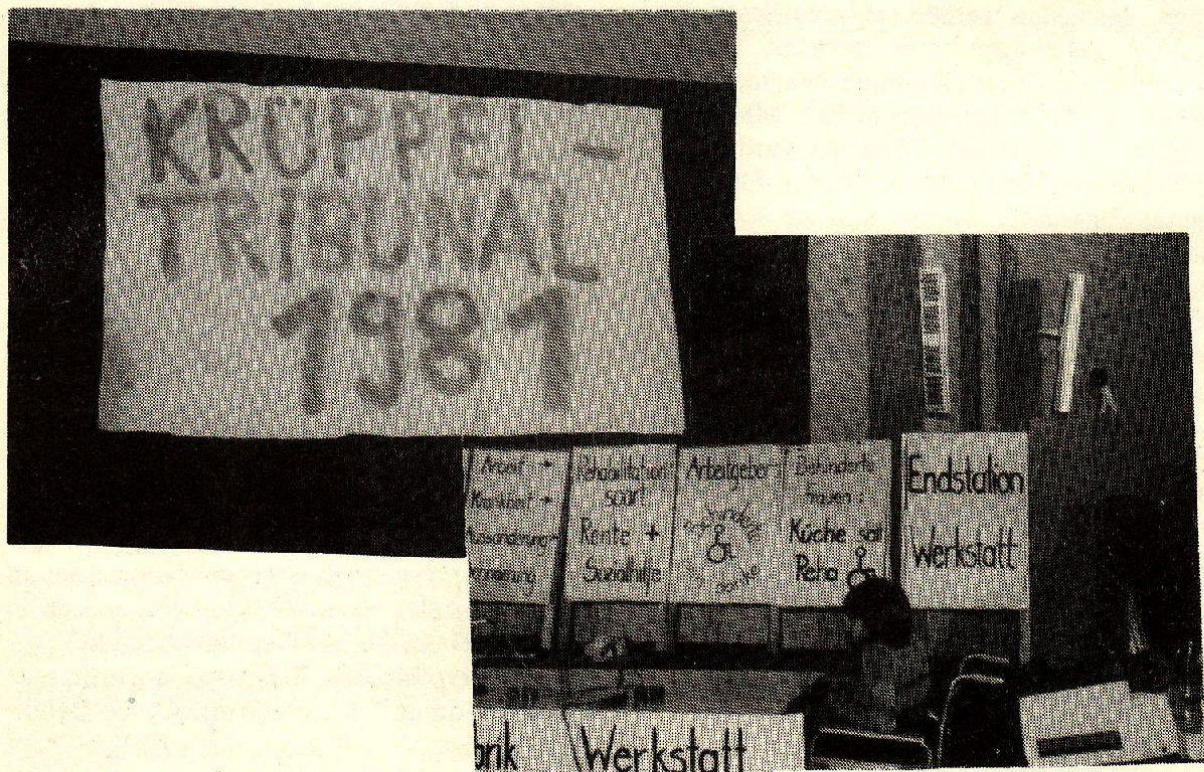 KRÜPPEL-
TRIBUNAL
1981
Arbeit →
Krankheit →
Aussonderung →
Rehabilitation
spart
Rente +
Sozialhilfe
Arbeitgeber
danke
Behinderte
Frauen:
Küche
Endstation
Werkstatt
brik
Werkstatt